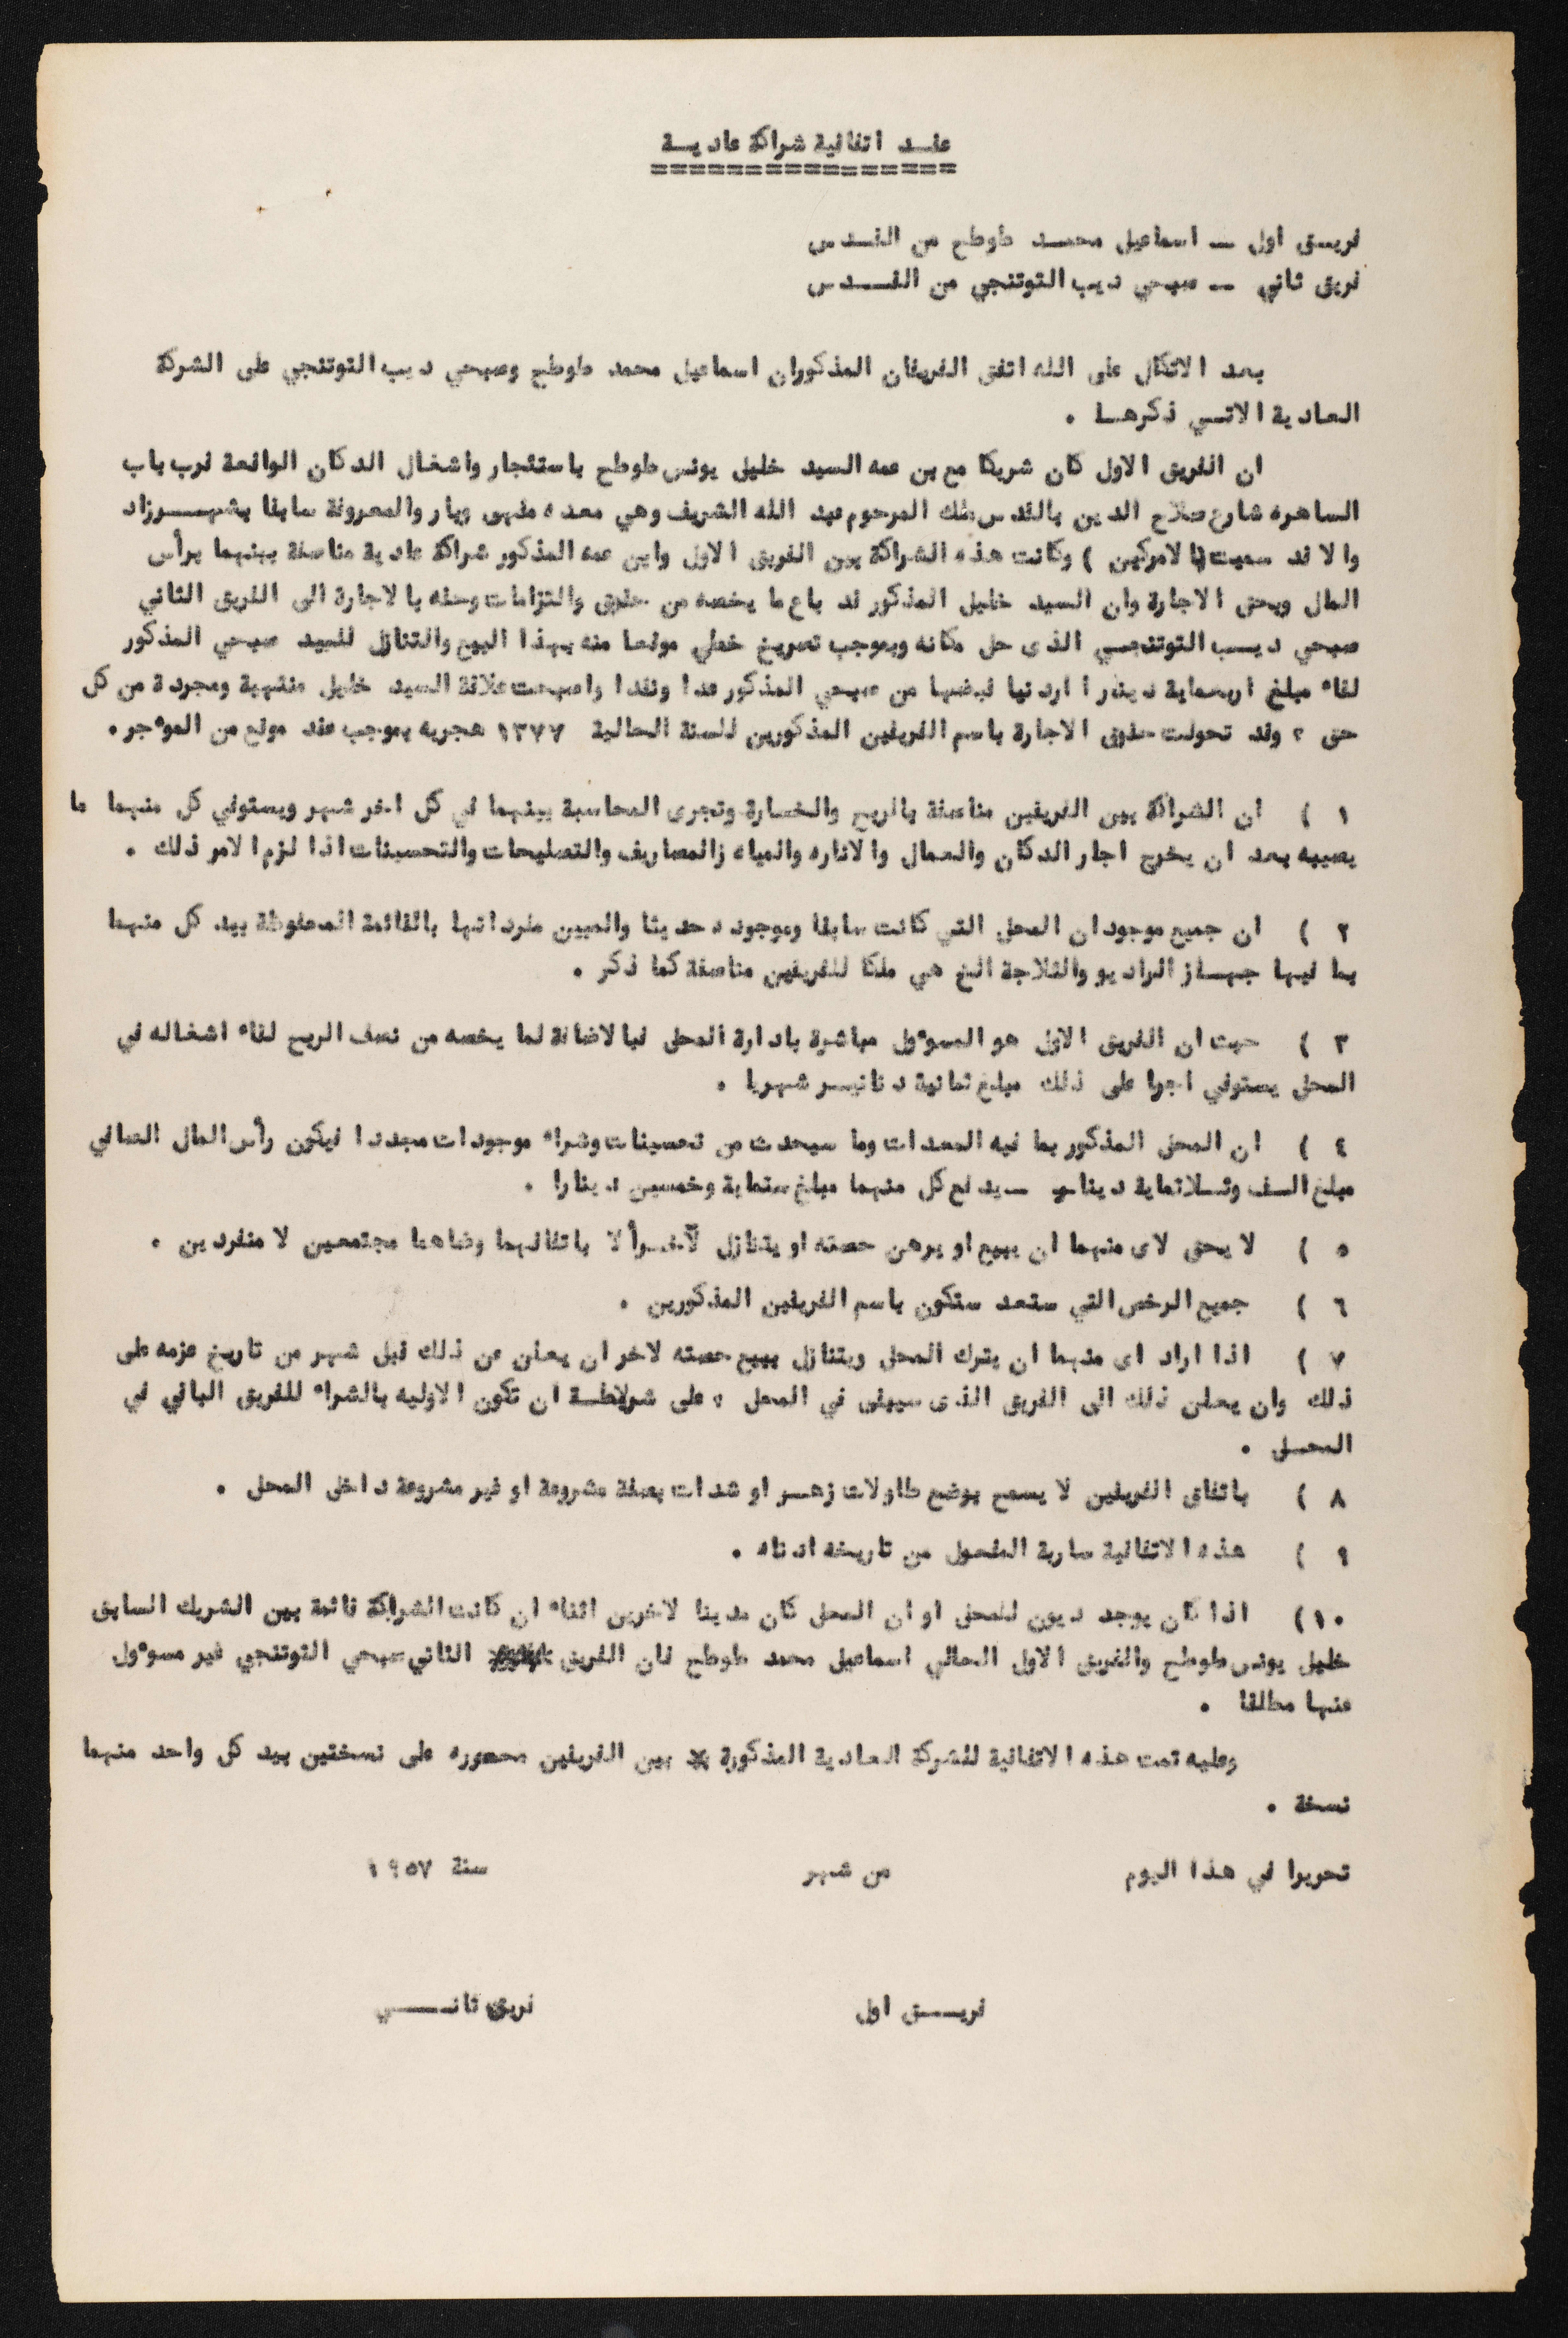 عقـد اتفاقية شراكة عاديـة
================
فريـق اول ـــ اسماعيل محمـد طوطح من القـدس
فريق ثاني ـــ صبحي ديب التوتنجي من القــدس
بعد الاتكال على الله اتفق الفريقان المذكوران اسماعيل محمد طوطح وصبحي ديب التوتنجي على الشركة
العادية الاتـي ذكرهـا .
ان الفريق الاول كان شريكا مع بن عمه السيد خليل يونس طوطح باستئجار واشغال الدكان الواقعة قرب باب
الساهره شارع صلاح الدين بالقدس ملك المرحوم عبد الله الشريف وهي معده مقهى وبار والمعروفة سابقا بشهــرزاد
والا قد سميت (بالامركين ) وكانت هذه الشراكة بين الفريق الاول وابن عمه المذكور شراكة عادية مناصفة بينهما برأس
المال وبحق الاجارة وان السيد خليل المذكور قد باع ما يخصه من حقوق والتزامات وحقه بالاجارة الى الفريق الثاني
صبحي ديـب التوتنجـي الذى حل مكانه وبموجب تصريح خطي موقعا منه بهذا البيع والتنازل للسيد صبحي المذكور
لقاء مبلغ اربعماية دينار ا اردنيا قبضها من صبحي المذكور عدا ونقدا واصبحت علاقة السيد خليل منتهية ومجردة من كل
حق ، وقد تحولت حقوق الاجارة باسم الفريقين المذكورين للسنة الحالية ١٣٧٧ هجريه بموجب عقد موقع من الموءجر .
١ ) ان الشراكة بين الفريقين مناصفة بالربح والخسارة وتجرى المحاسبة بينهما في كل اخر شهر ويستوفي كل منهما ما
يصيبه بعد ان يخرج اجار الدكان والعمال والاناره والمياه زالمصاريف والتصليحات والتحسينات اذا لزم الامر ذلك .
٢ ) ان جميع موجودان المحل التي كانت سابقا وموجوده حديثا والمبين مفرداتها بالقائمة المحفوظة بيد كل منهما
بما فيها جهـاز الراديو والثلاجة الخ هي ملكا للفريقين مناصفة كما ذكر .
٣ ) حيث ان الفريق الاول هو المسوءول مباشرة بادارة المحل فبالاضافة لما يخصه من نصف الربح لقاء اشغاله في
المحل يستوفي اجرا على ذلك مبلغ ثمانية دنانيـر شهريا .
٤ ) ان المحل المذكور بما فيه المعدات وما سيحدث من تحسينات وشراء موجودات مجددا فيكون رأس المال الصافي
مبلغ الـف وثـلاثماية دينار ـيدفع كل منهما مبلغ ستماية وخمسين دينارا .
٥ ) لا يحق لاى منهما ان يبيع او يرهن حصته او يتنازل لآخـر ألا باتفاقهما ورضاهما مجتمعين لا منفردين .
٦ ) جميع الرخص التي ستعد ستكون باسم الفريقين المذكورين .
٧ ) اذا اراد اى منهما ان يترك المحل ويتنازل ببيع حصته لاخر ان يعلن عن ذلك قبل شهر من تاريخ عزمه على
ذلك وان يعلن ذلك الى الفريق الذى سيبقى في المحل ، على شريطـة ان تكون الاوليه بالشراء للفريق الباقي في
المحـل .
٨ ) باتفاق الفريقين لا يسمح بوضع طاولات زهـر او شدات بصفة مشروعة او غير مشروعة داخل المحل .
٩ ) هذه الاتفاقية سارية المفعول من تاريخه ادناه .
١٠) اذا كان يوجد ديون للمحل او ان المحل كان مدينا لاخرين اثناء ان كانت الشراكة قائمة بين الشريك السابق
خليل يونس طوطح والفريق الاول الحالي اسماعيل محمد طوطح فان الفريق الثاني صبحي التوتنجي غير مسوءول
عنها مطلقا .
وعليه تمت هذه الاتفاقية للشركة العادية المذكورة بين الفريقين محصوره على نسختين بيد كل واحد منهما
نسخة .
تحريرا في هذا اليوم من شهر سنة ١٩٥٧
فريــق اول فريق ثانــي